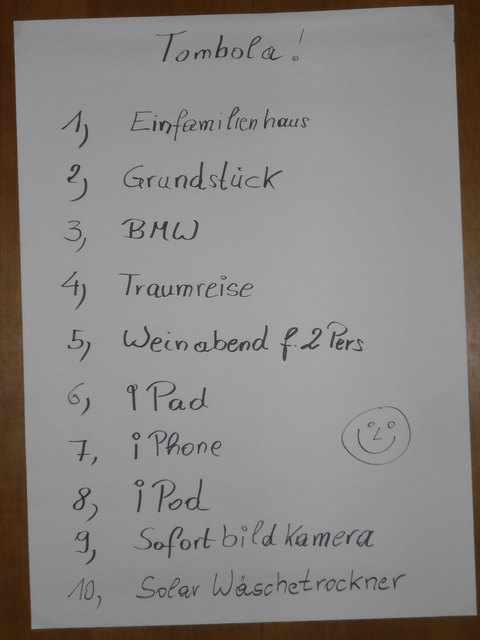 Tombola!
1) Einfamilienhaus
2) Grundstück
3) BMW
4) Traumreise
5) Weinabend f. 2 Pers
6) iPad
7) iPhone
8) iPod
9) Sofortbild Kamera
10) Solar Wäschetrockner